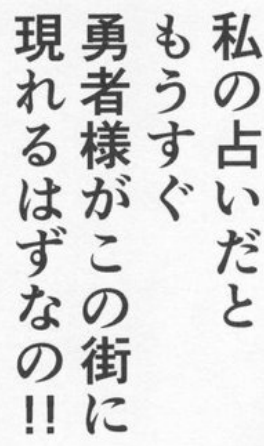 私の占いだと
もうすぐ
勇者様がこの街に
現れるはずなの!!